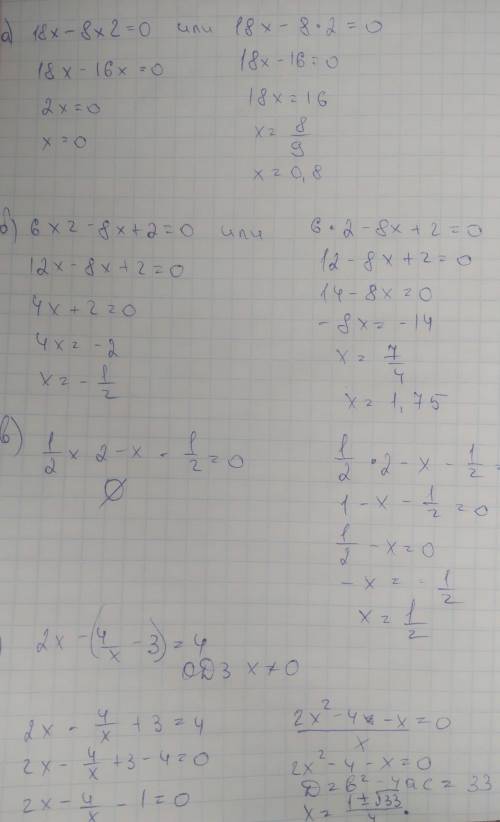 а) 18x - 8x2 = 0 или 18x - 8·2 = 0
18x - 16x = 0
18x - 16 = 0
2x = 0
18x = 16
x = 0
x = 8/9
x = 0,8
б) 6x2 - 8x + 2 = 0 или 6·2 - 8x + 2 = 0
12x - 8x + 2 = 0
12 - 8x + 2 = 0
4x + 2 = 0
14 - 8x = 0
4x = -2
-8x = -14
x = -1/2
x = 7/4
x = 1,75
в) 1/2 x 2 - x - 1/2 = 0
∅
1/2 · 2 - x - 1/2 =
1 - x - 1/2 = 0
1/2 - x = 0
-x = -1/2
x = 1/2
) 2x - (4/x - 3) = 4
ОДЗ x ≠ 0
2x - 4/x + 3 = 4
2x - 4/x + 3 - 4 = 0
2x - 4/x - 1 = 0
(2x² - 4 - x)/x = 0
2x² - 4 - x = 0
D = b² - 4ac = 33
x = (1 ± √33)/4 .